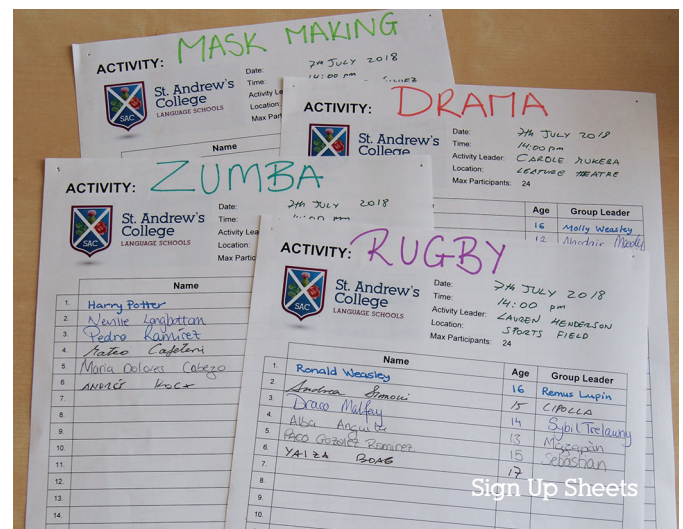 ACTIVITY: MASK MAKING
St. Andrew's
College
LANGUAGE SCHOOLS
SAC
Date: 7th JULY 2018
Time: 14:00 pm
Activity Le
Location:
Max Parti
Name
ACTIVITY: DRAMA
St. Andrew's
College
Date: 7th JULY 2018
Time: 14:00 pm
Activity Leader: CAROLE MUKEBA
Location: LECTURE THEATRE
Max Participants: 24
Age Group Leader
16 Molly Weasley
12
ACTIVITY: ZUMBA
St. Andrew's
College
LANGUAGE SCHOOLS
SAC
Date: 7th JULY 2018
Time: 14:00 pm
Activity Lea
Location:
Max Partic
Name
1. Harry Potter
2. Neville Longbottom
3. Pedro Ramirez
4. Mateo Cafeteri
5. Maria Dolores Cabezo
6. ANDRÉS
7.
8.
9.
10.
11.
12.
13.
14.
ACTIVITY: RUGBY
St. Andrew's
College
LANGUAGE SCHOOLS
SAC
Date: 7th JULY 2018
Time: 14:00 pm
Activity Leader: LAUREN HENDERSON
Location: SPORTS FIELD
Max Participants: 24
Name Age Group Leader
1. Ronald Weasley 16 Remus Lupin
2. Andrea Simoni 15 CIPOLLA
3. Draco Malfoy 14 Sybil Trelawny
4. Alba 13 Mazapán
5. Paco Gozolez Ramirez 15 Sebastian
6. YAIZA BOAG 17
7.
8.
9.
10.
Sign Up Sheets